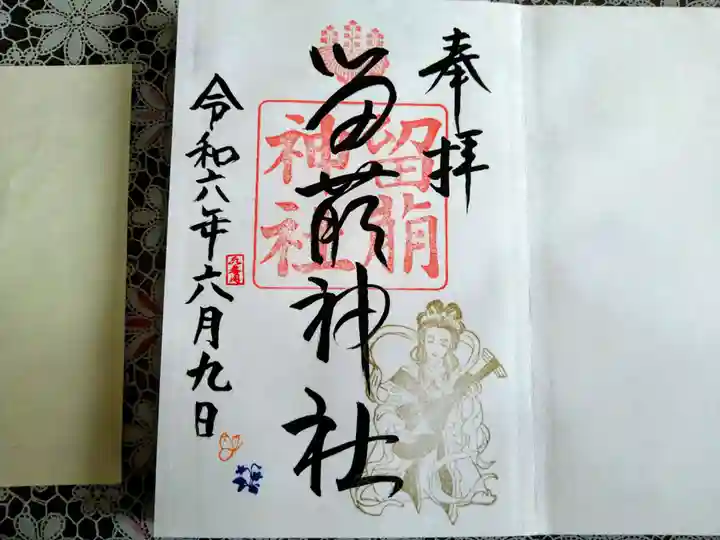 奉拝
留萠神社
留萠
神社
令和六年六月九日